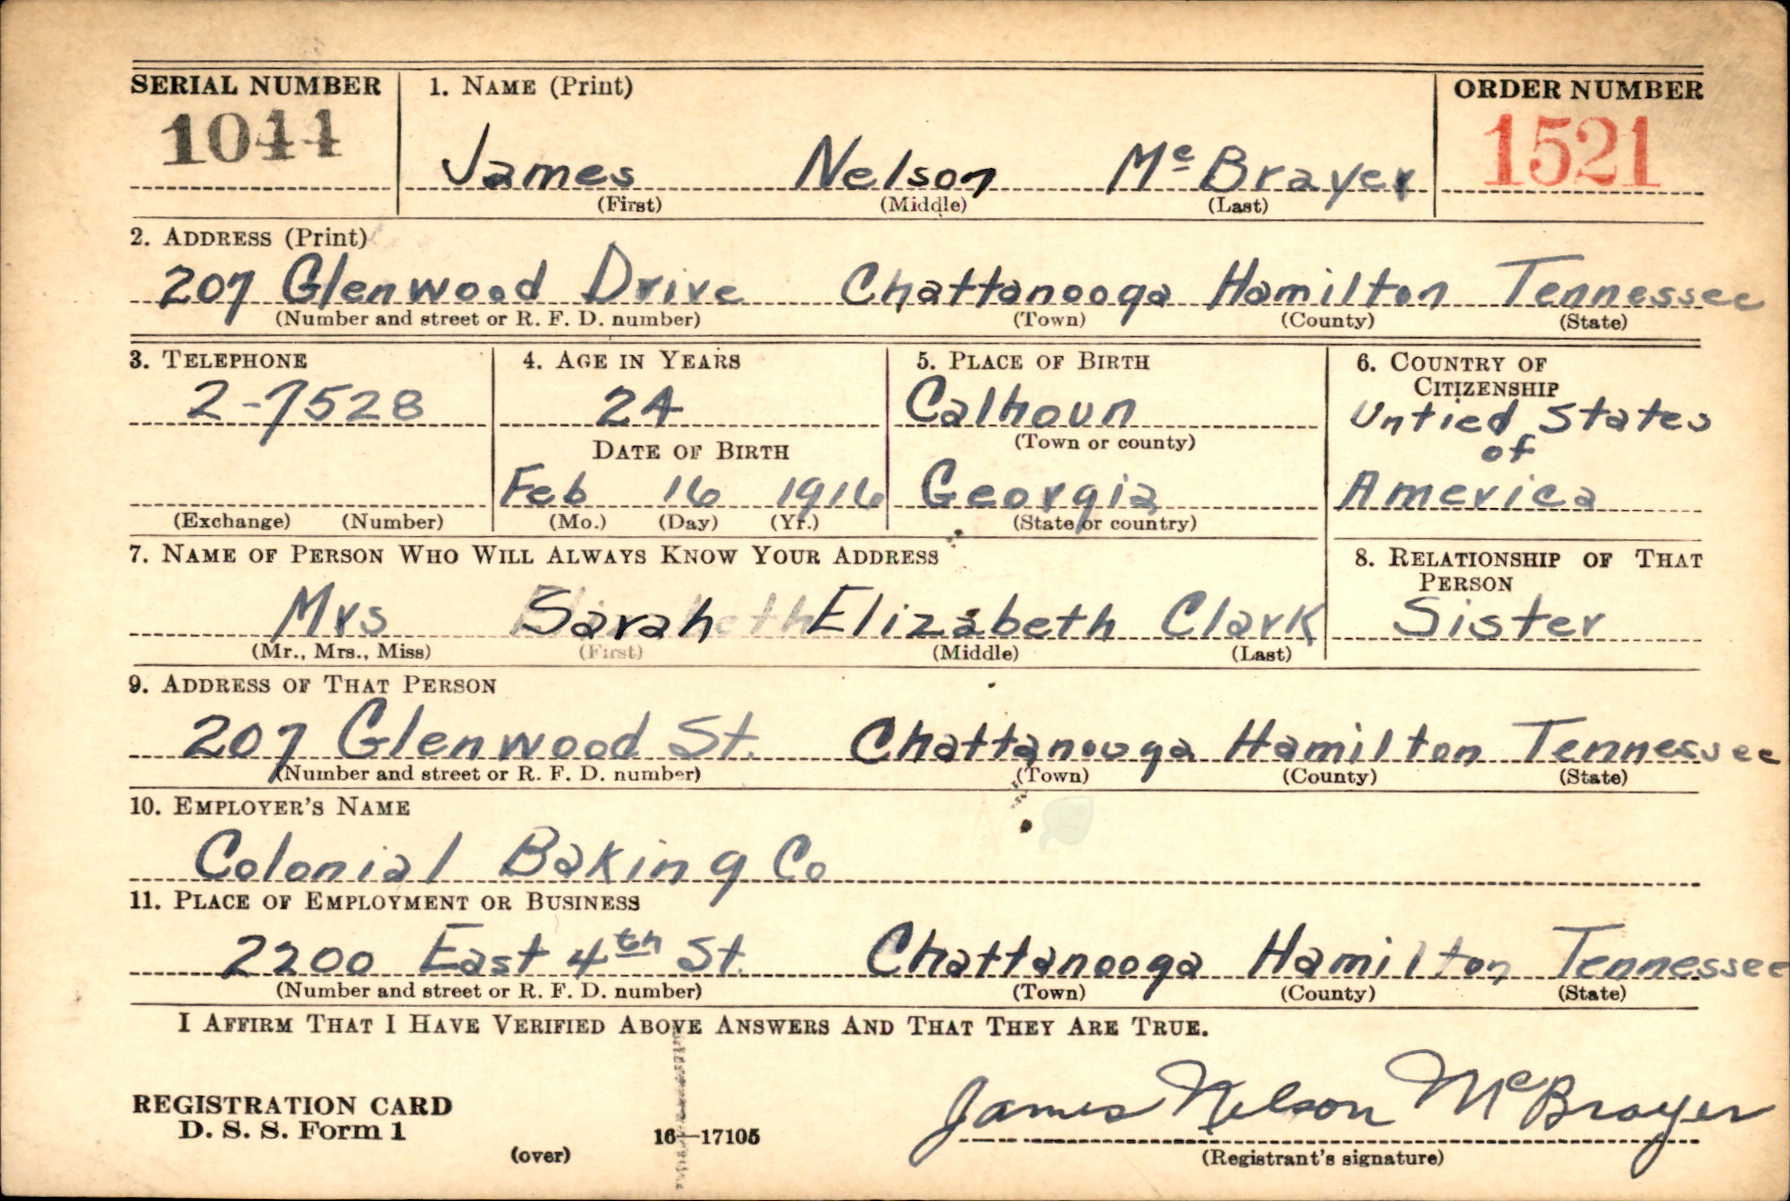 SERIAL NUMBER 1. NAME (Print) ORDER NUMBER
1044 James Nelson McBrayer 1521
(First) (Middle) (Last)
2. ADDRESS (Print)
207 Glenwood Drive Chattanooga Hamilton Tennessee
(Number and street or R. F. D. number) (Town) (County) (State)
3. TELEPHONE 4. AGE IN YEARS 5. PLACE OF BIRTH 6. COUNTRY OF
CITIZENSHIP
2-7528 24 Calhoun Untied States
(Town or county) of
DATE OF BIRTH
Feb 16 1916 Georgia America
(Exchange) (Number) (Mo.) (Day) (Yr.) (State or country)
7. NAME OF PERSON WHO WILL ALWAYS KNOW YOUR ADDRESS 8. RELATIONSHIP OF THAT
PERSON
Mrs Sarah Elizabeth Clark Sister
(Mr., Mrs., Miss) (First) (Middle) (Last)
9. ADDRESS OF THAT PERSON
207 Glenwood St. Chattanouga Hamilton Tennessee
(Number and street or R. F. D. number) (Town) (County) (State)
10. EMPLOYER'S NAME
Colonial Baking Co
11. PLACE OF EMPLOYMENT OR BUSINESS
2200 East 4th St. Chattanooga Hamilton Tennessee
(Number and street or R. F. D. number) (Town) (County) (State)
I AFFIRM THAT I HAVE VERIFIED ABOVE ANSWERS AND THAT THEY ARE TRUE.
REGISTRATION CARD James Nelson McBrayer
D. S. S. Form 1 16—17105
(over) (Registrant's signature)